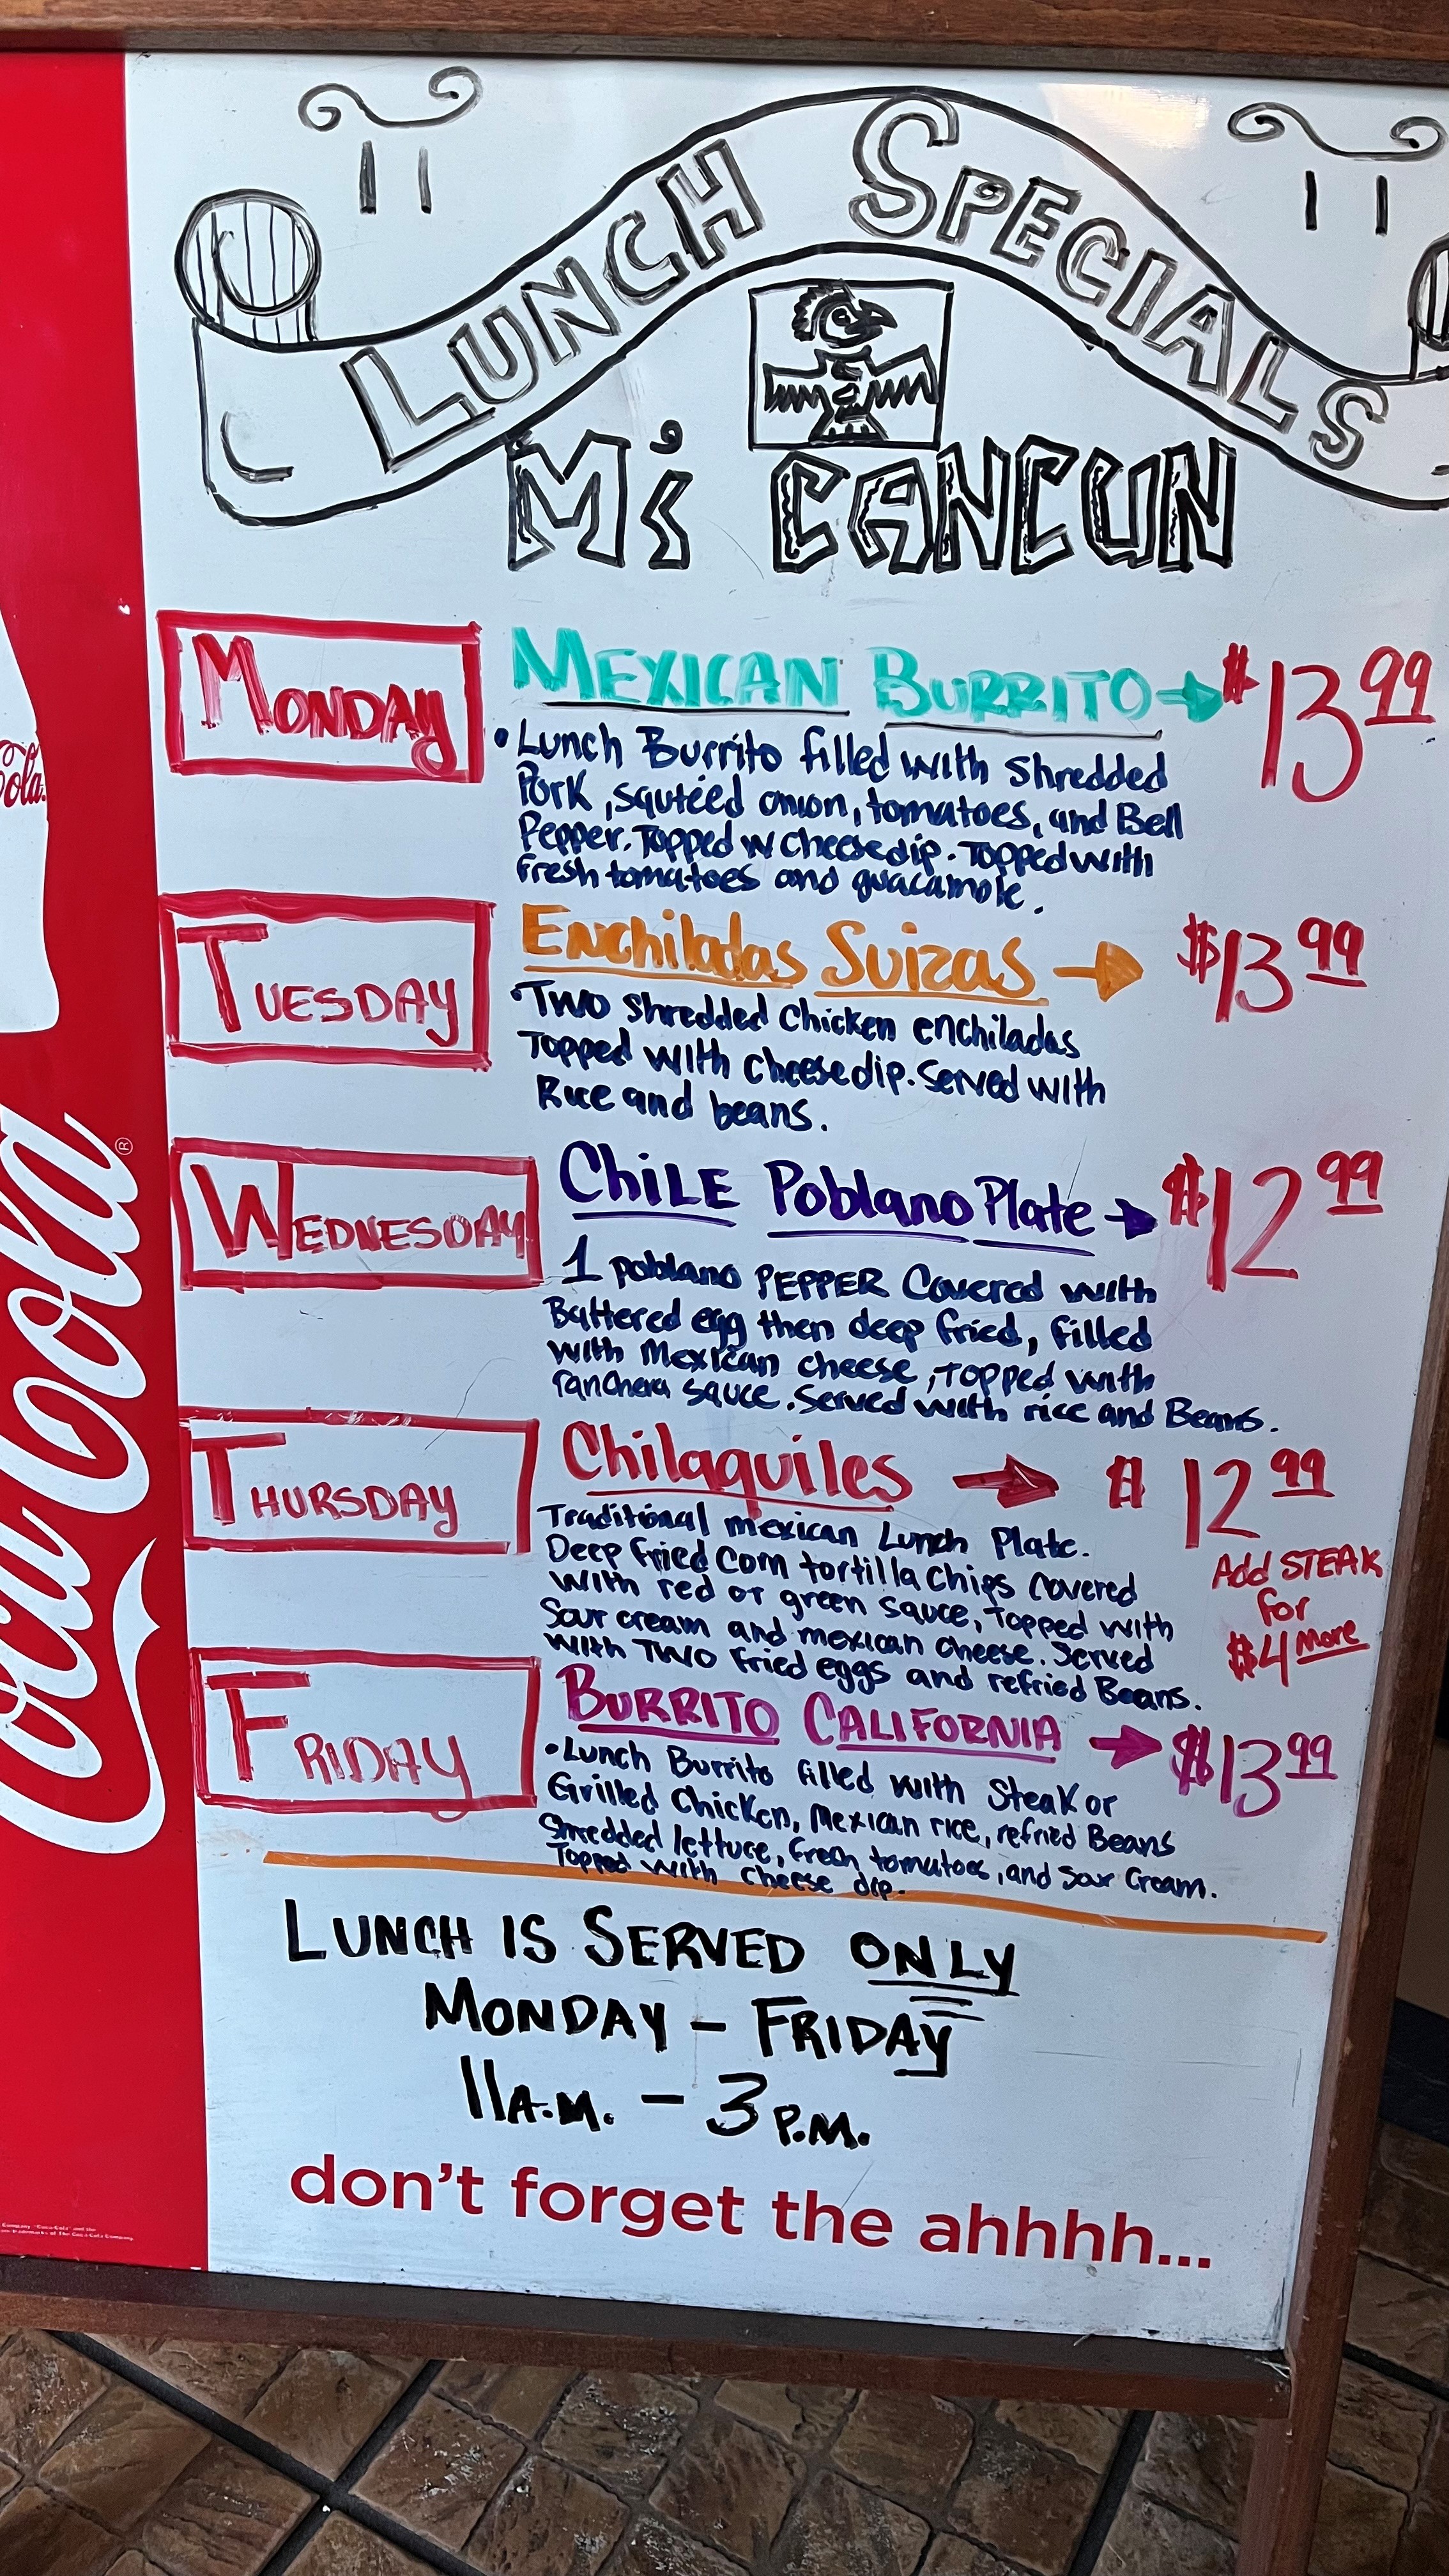 LUNCH SPECIALS
Mi CANCUN
MONDAY
MEXICAN BURRITO $13.99
• Lunch Burrito filled with shredded
Pork, sautéed onion, tomatoes, and Bell
Pepper. Topped w cheesedip. Topped with
fresh tomatoes and guacamole.
TUESDAY
Enchiladas Suizas $13.99
• Two shredded chicken enchiladas
Topped with cheesedip. Served with
Rice and beans.
WEDNESDAY
CHiLE Poblano Plate $12.99
1 poblano PEPPER Covered with
Battered egg then deep fried, filled
with Mexican cheese, Topped with
ranchera sauce. Served with rice and Beans.
THURSDAY
Chilaquiles $12.99
Traditional mexican Lunch Plate.
Deep fried Corn tortilla chips covered
with red or green sauce, Topped with
Sour cream and mexican cheese. Served
with TWO fried eggs and refried Beans.
Add STEAK
for
$4 More
FRIDAY
BURRITO CALIFORNIA $13.99
• Lunch Burrito filled with Steak or
Grilled Chicken, Mexican rice, refried Beans
Shredded lettuce, fresh tomatoes, and Sour Cream.
Topped with cheese dip.
LUNCH IS SERVED ONLY
MONDAY – FRIDAY
11 A.M. – 3 P.M.
don't forget the ahhhh...
Coca-Cola®
Cola